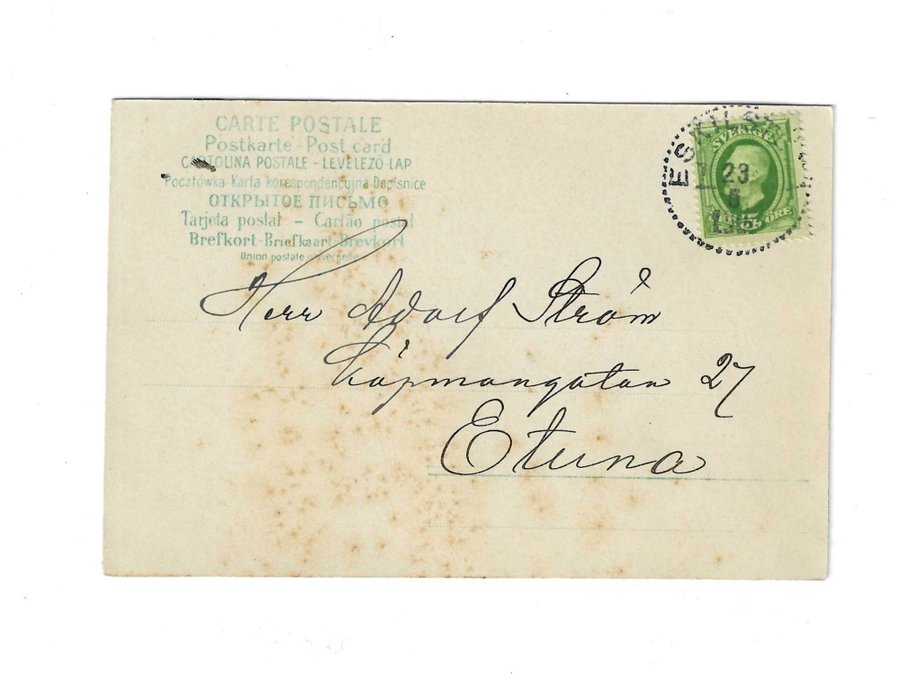 CARTE POSTALE
Postkarte - Post card
CARTOLINA POSTALE - LEVELEZÖ-LAP
Pocztówka-Karta korespondencyjna-Dopisnice
ОТКРЫТОЕ ПИСЬМО
Tarjeta postal - Cartão postal
Brefkort-Briefkaart-Brevkort
Union postale universelle
SVERIGE
23
8
5 ÖRE
Herr Adolf Ström
Köpmangatan 27
Etuna